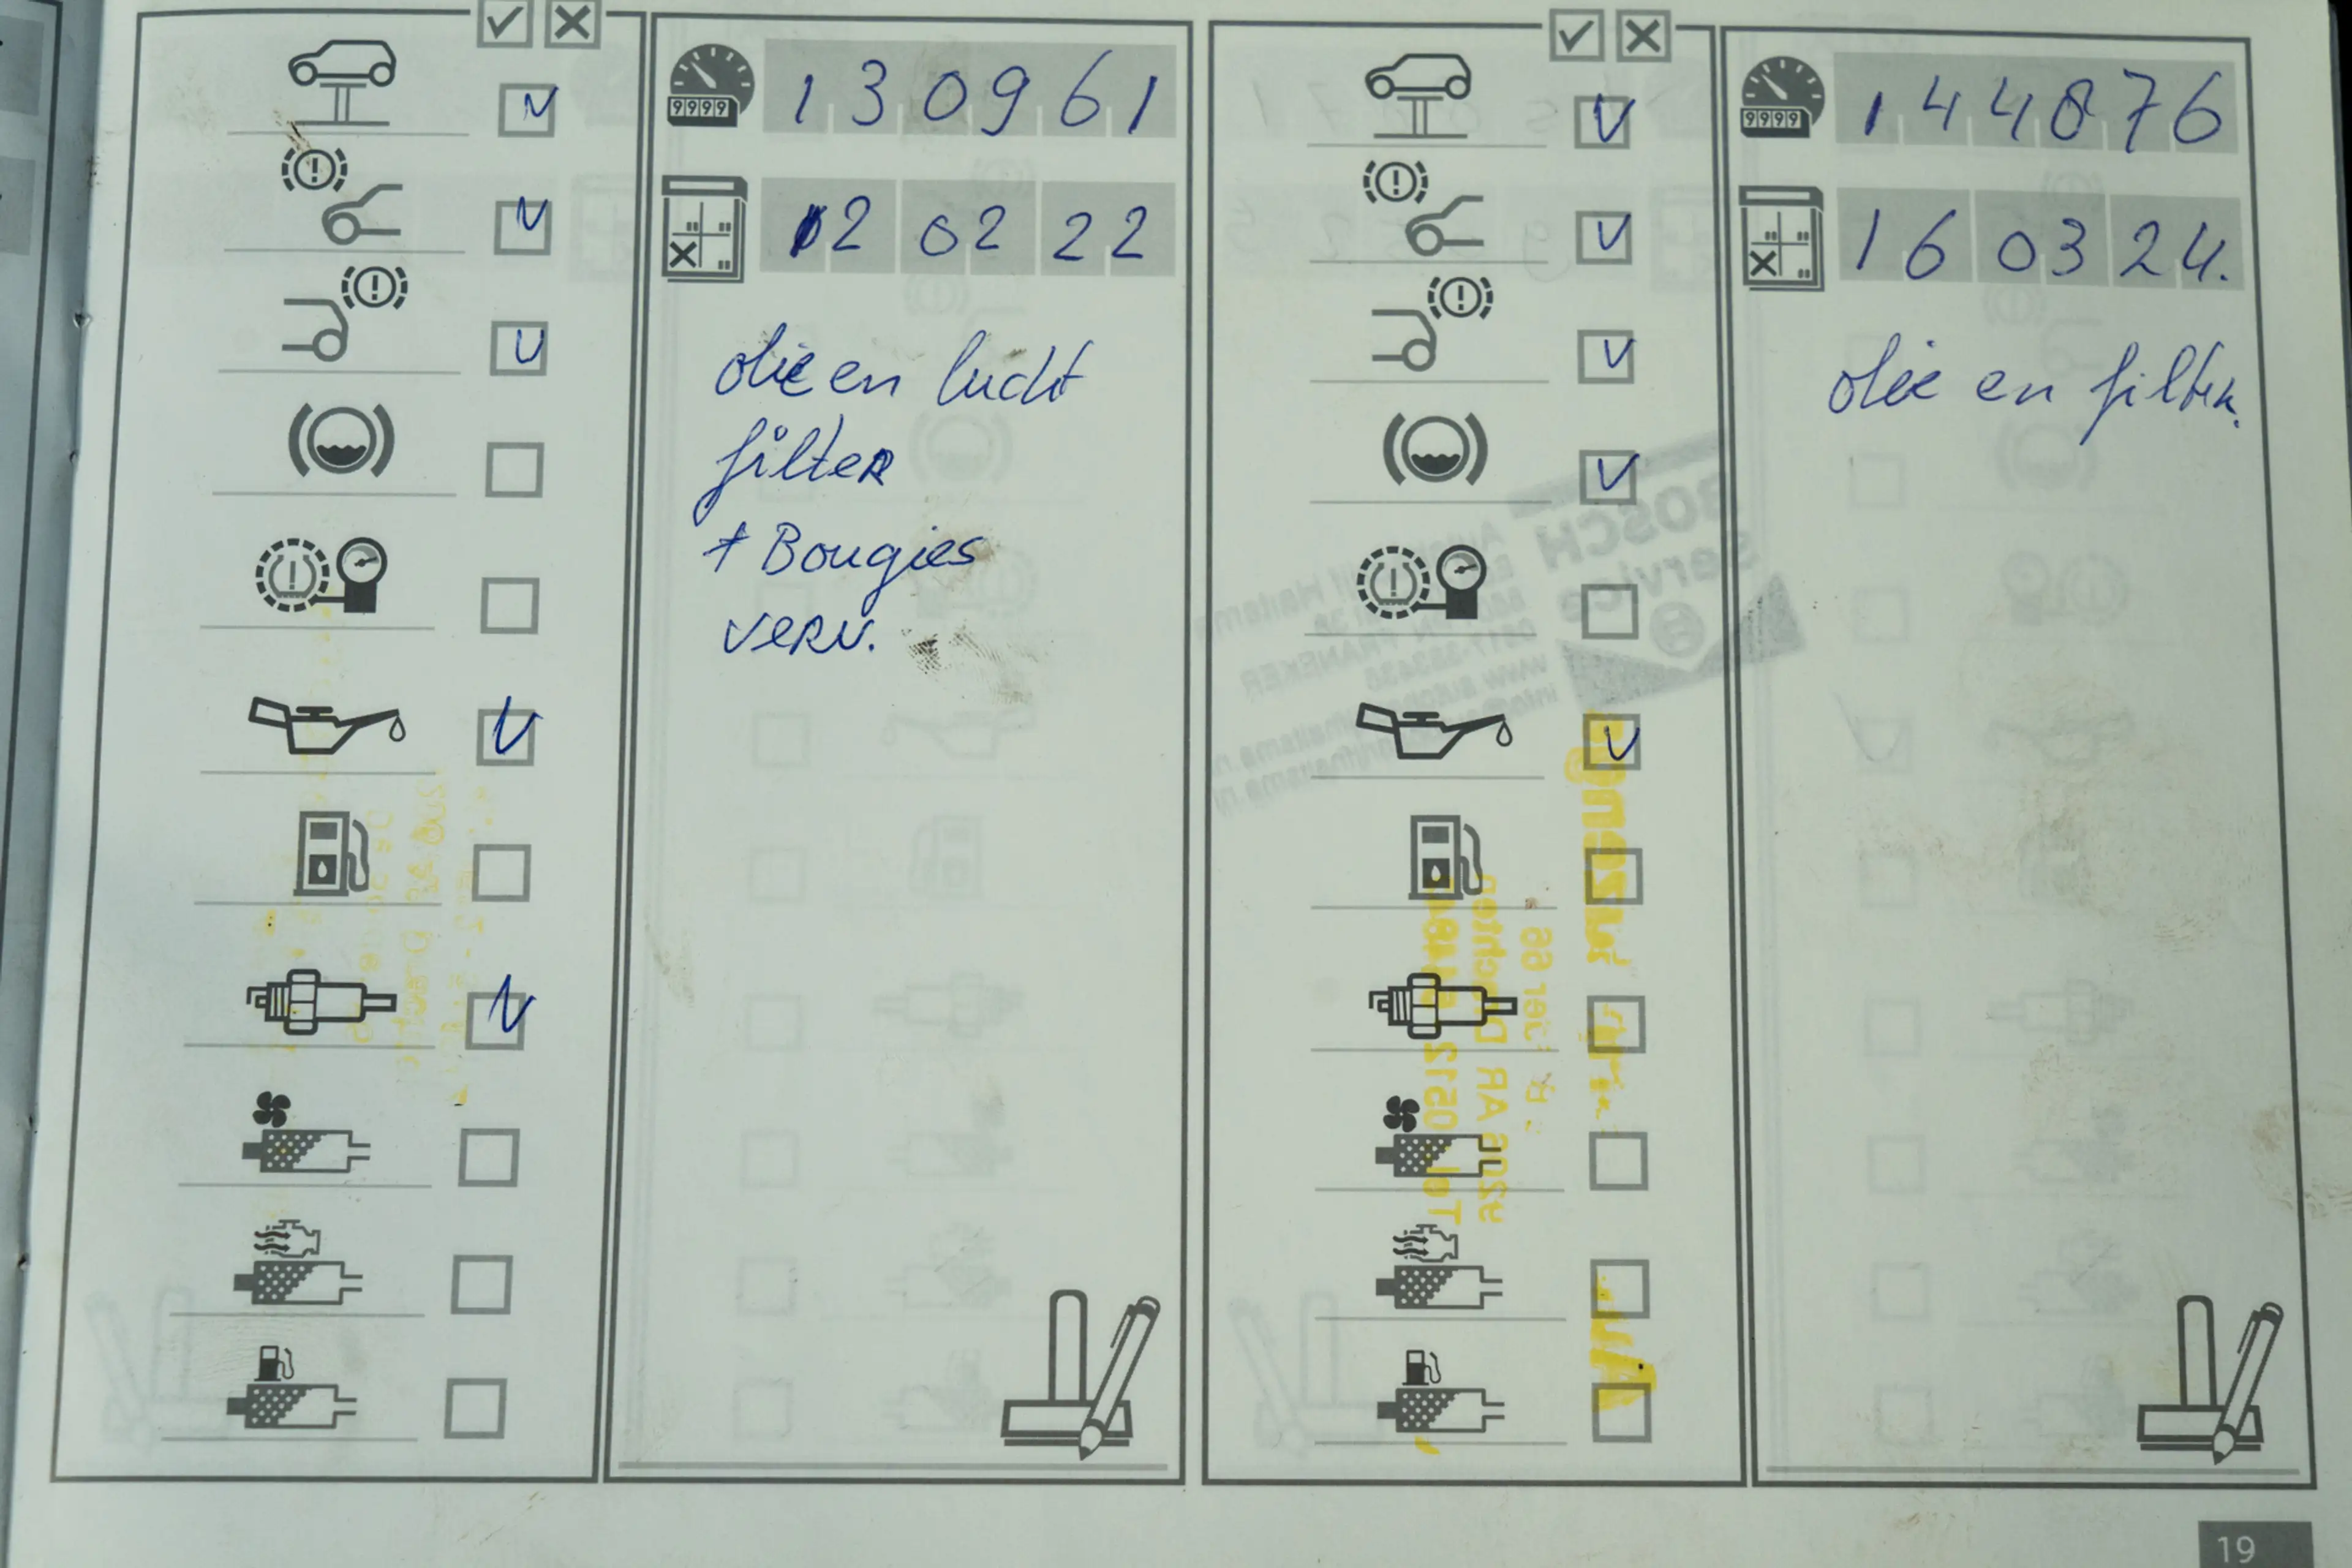 9999
130961
12 02 22
olie en lucht
filter
+ Bougies
verv.
9999
144876
16 03 24.
olie en filter.
BOSCH
Service
FRANEKER
19